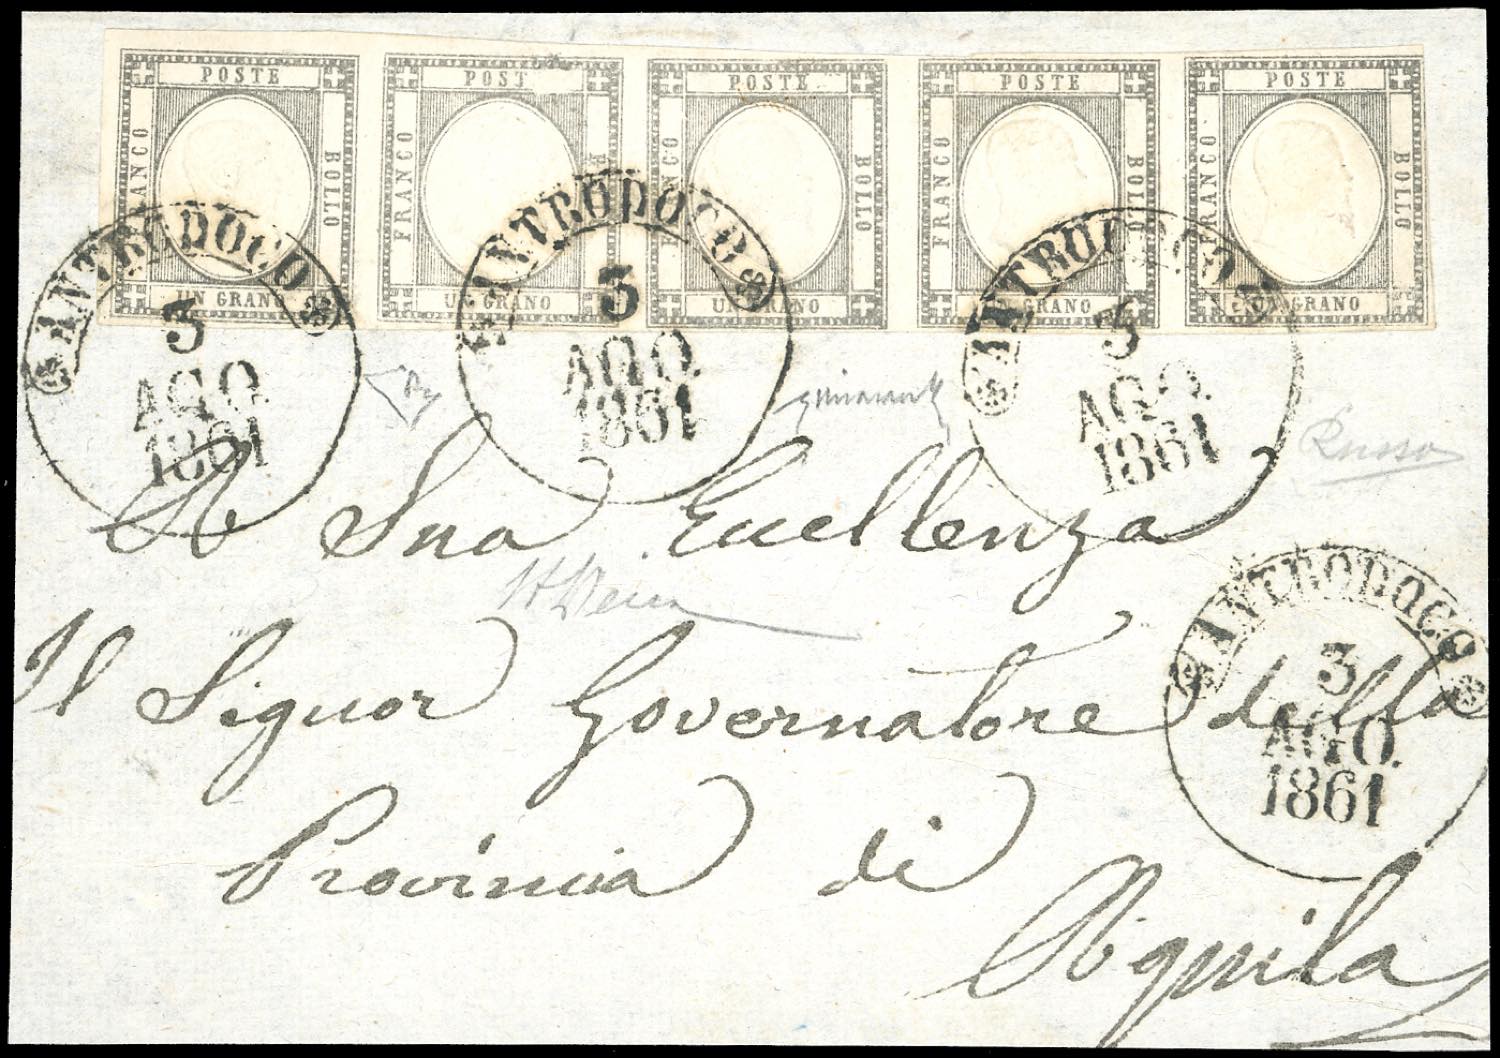 POSTE POST POSTE POSTE POSTE
FRANCO BOLLO FRANCO FRANCO BOLLO FRANCO BOLLO FRANCO BOLLO
UN GRANO UN GRANO UN GRANO UN GRANO UN GRANO
ANTRODOCO
3
AGO.
1861
ANTRODOCO
3
AGO.
1861
ANTRODOCO
3
AGO.
1861
Russo
A Sua Eccellenza
Il Signor Governatore della
Provincia di
Aquila
ANTRODOCO
3
AGO.
1861